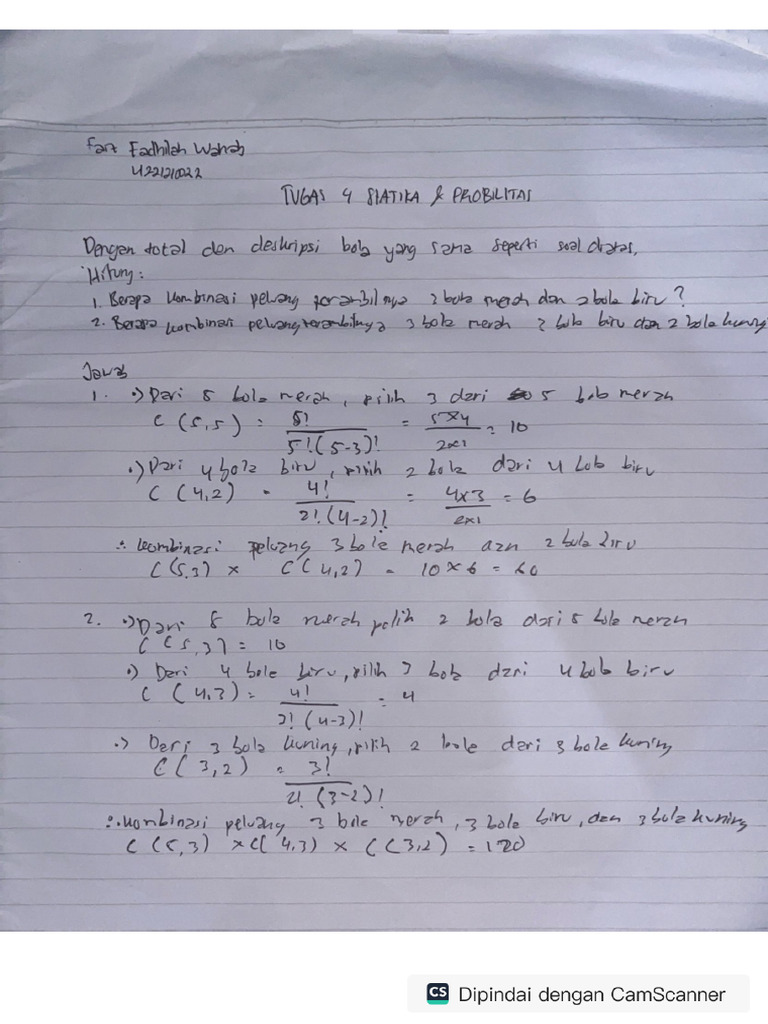 Fadhilah Wahab
TUGAS 4 STATIKA & PROBILITAS
Dengan total dan deskripsi bola yang sama seperti soal diatas,
Hitung:
1. Berapa kombinasi peluang terambilnya 3 bola merah dan 2 bola biru?
2. Berapa kombinasi peluang terambilnya 3 bola merah 2 bola biru dan 2 bola kuning
Jawab
1. •) Dari 5 bola merah, pilih 3 dari 5 bola merah
C (5,5) = 5! / 5!(5-3)! = 5x4 / 2x1 = 10
•) Dari 4 bola biru, pilih 2 bola dari 4 bola biru
C (4,2) = 4! / 2!(4-2)! = 4x3 / 2x1 = 6
∴ kombinasi peluang 3 bola merah dan 2 bola biru
C(5,3) x C(4,2) = 10 x 6 = 60
2. •) Dari 5 bola merah bola dari 5 bola merah
C (5,3) = 10
•) Dari 4 bola biru, pilih 3 bola dari 4 bola biru
C (4,3) = 4! (4-3)! = 4
•) Dari 3 bola kuning, pilih 2 bola dari 3 bola kuning
C (3,2) = 3! / 2! (3-2)!
∴ kombinasi peluang 3 bola merah, 3 bola biru, dan 3 bola kuning
C (5,3) x C(4,3) x C(3,2) = 120
CS Dipindai dengan CamScanner